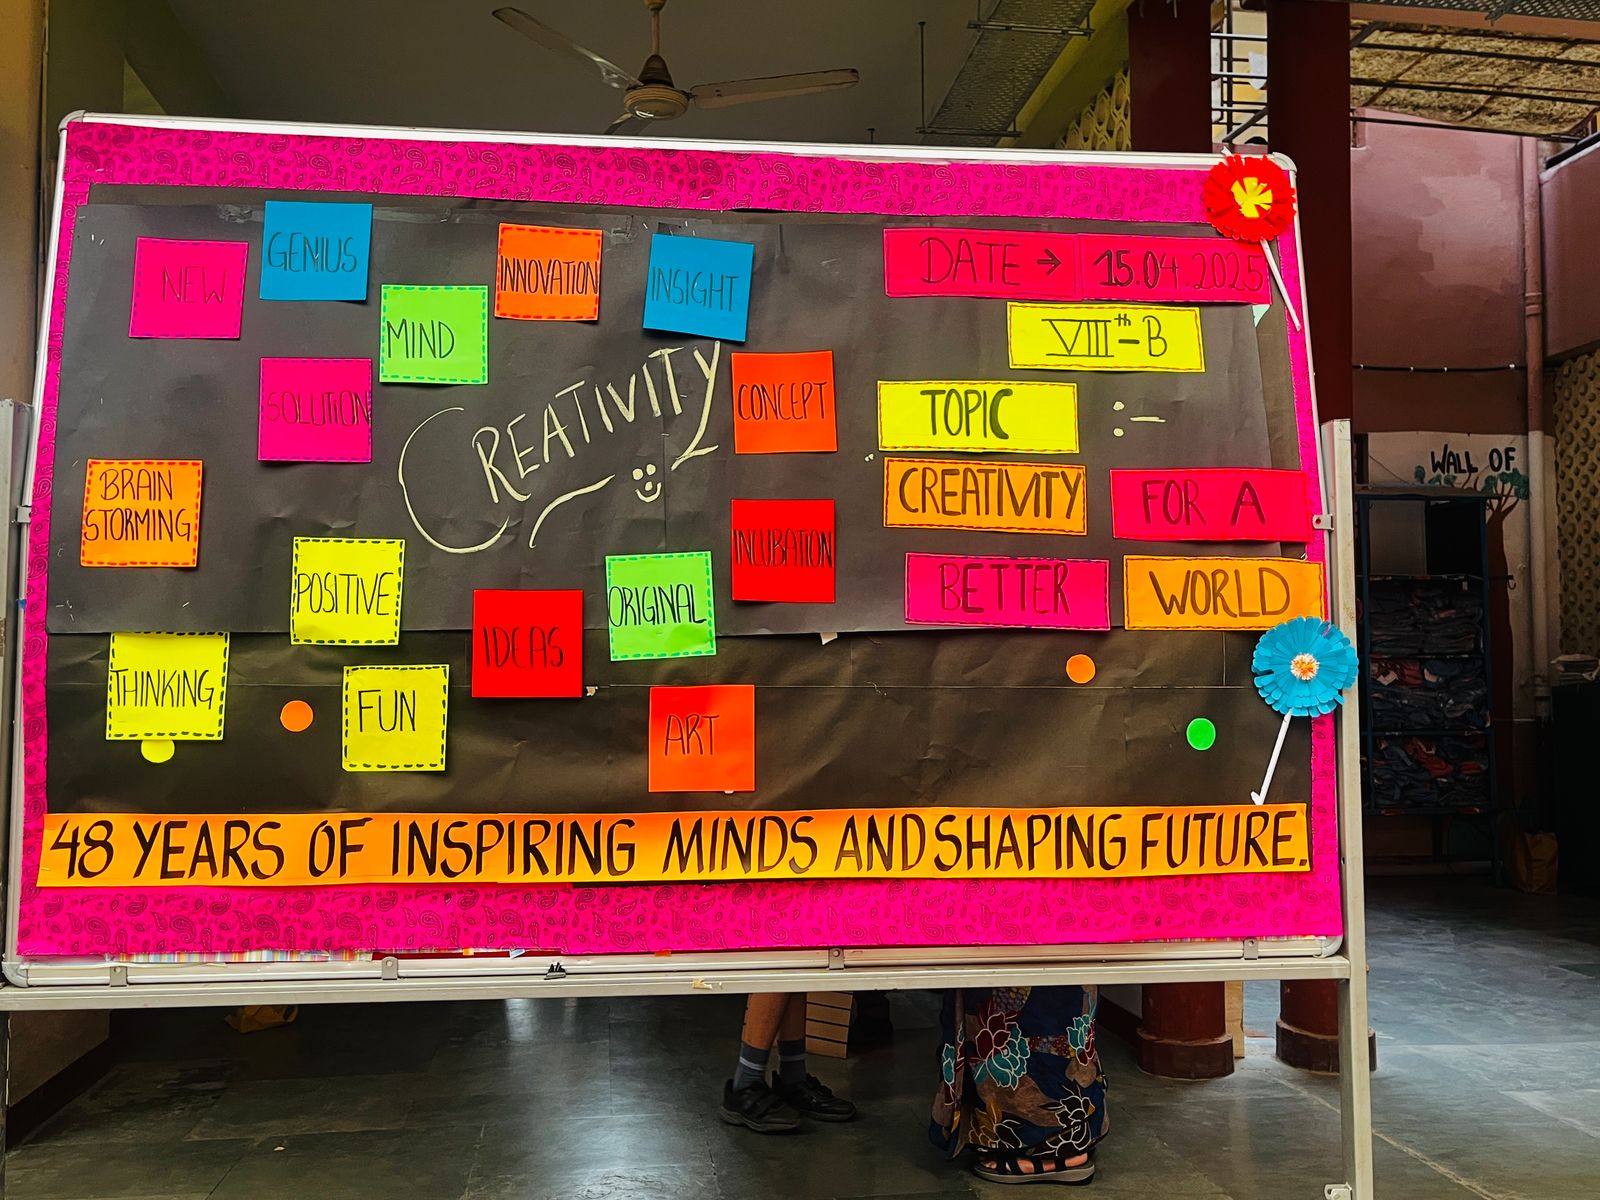 NEW
GENIUS
MIND
INNOVATION
INSIGHT
SOLUTION
CREATIVITY
CONCEPT
BRAIN
STORMING
POSITIVE
INCUBATION
ORIGINAL
IDEAS
THINKING
FUN
ART
DATE → 15.04.2025
VIIIth - B
TOPIC :-
CREATIVITY FOR A
BETTER WORLD
48 YEARS OF INSPIRING MINDS AND SHAPING FUTURE.
WALL OF